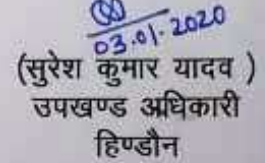 03.01.2020
(सुरेश कुमार यादव )
उपखण्ड अधिकारी
हिण्डौन